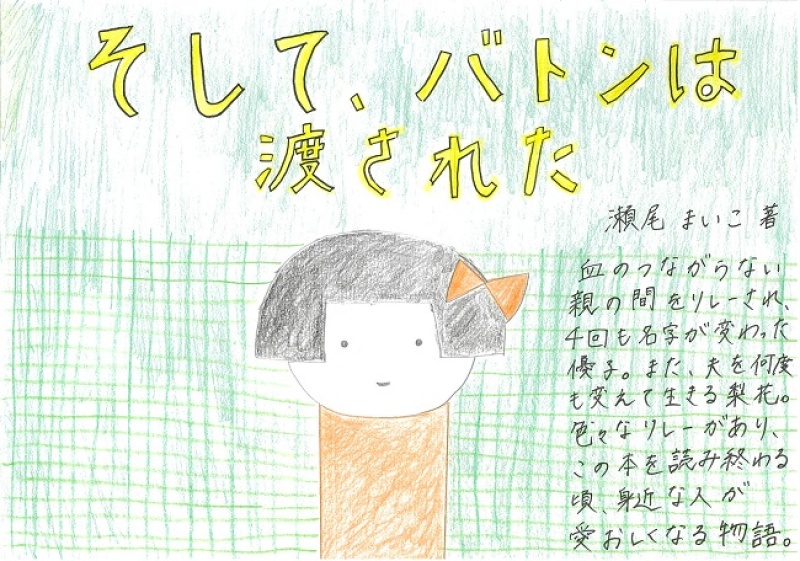 そして、バトンは
渡された
瀬尾 まいこ 著
血のつながらない
親の間をリレーされ、
4回も名字が変わった
優子。また、夫を何度
も変えて生きる梨花。
色々なリレーがあり、
この本を読み終わる
頃、身近な人が
愛おしくなる物語。